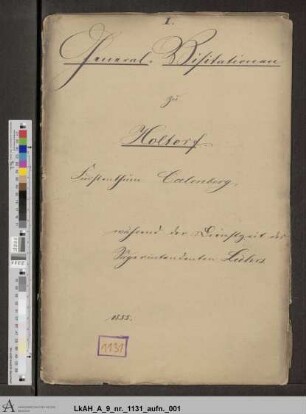 I.
General-Visitationen
zu
Holtorf
Fürstenthum Calenberg.
während der Dienstzeit des
Superintendenten
1888.
1131
LkAH_A_9_nr._1131_aufn._001